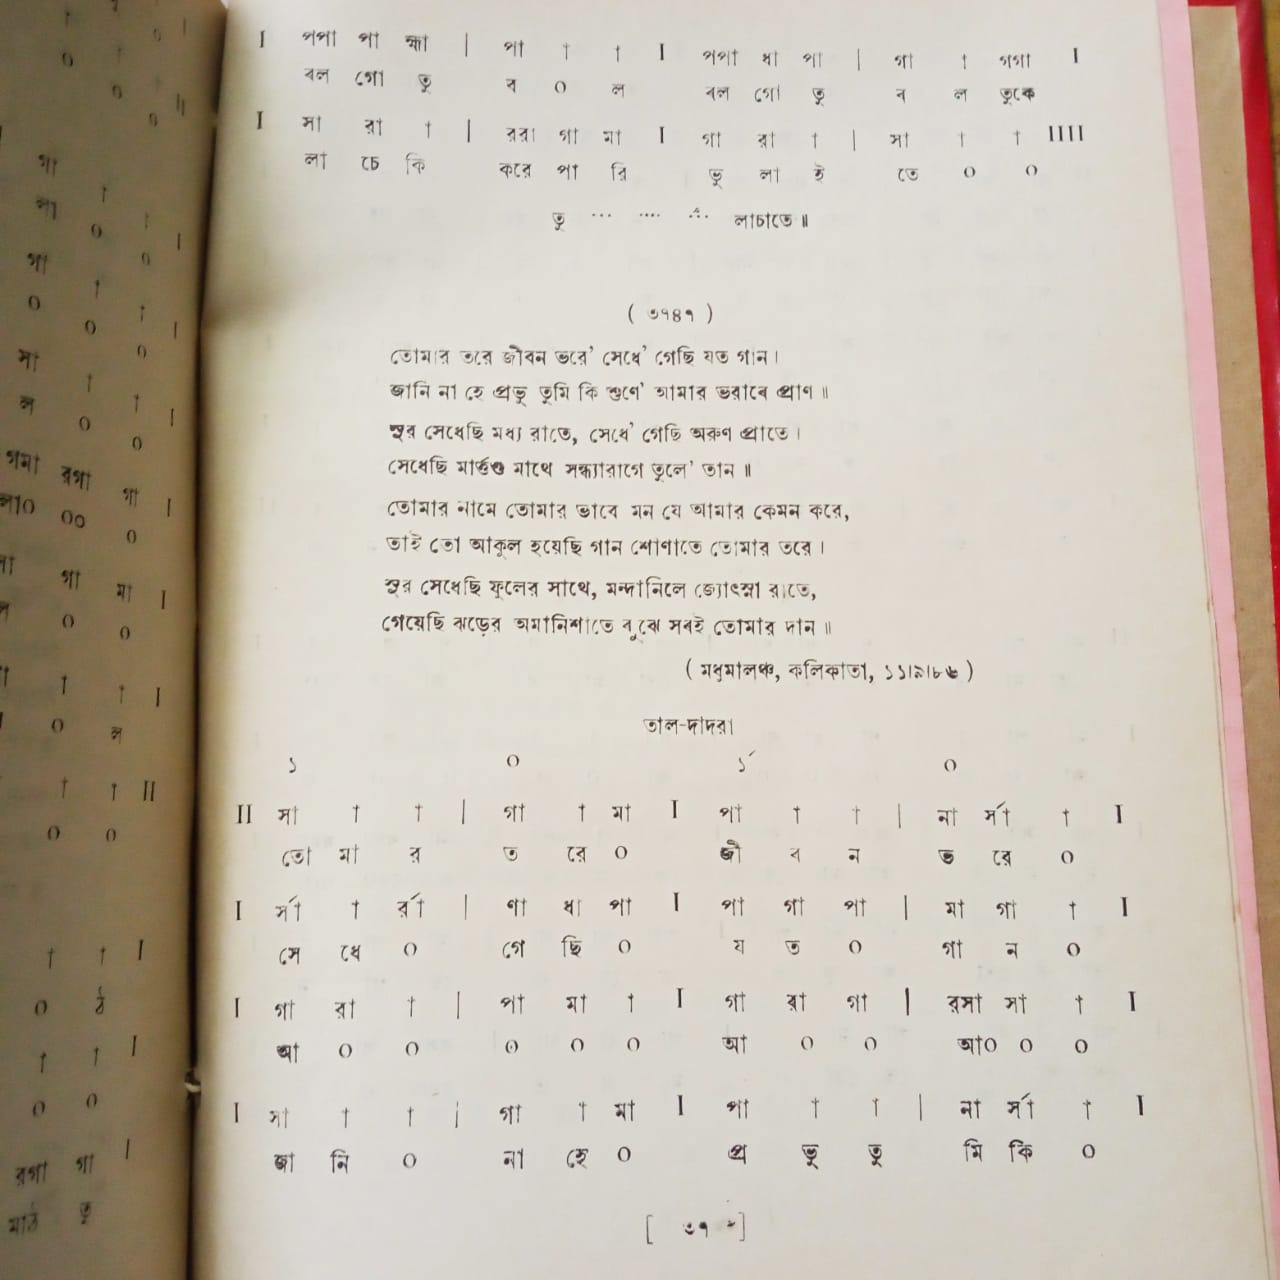 I পপা পা হ্মা | পা † † I পপা ধা পা | গা † গগা I
বল গো তু ব ০ ল বল গো তু ব ল তুকে
I সা রা † | ররা গা মা I গা রা † | সা † † IIII
লা চে কি করে পা রি ভু লা ই তে ০ ০
তু ... .... ... লাচাতে॥
( ৩৭৪৭ )
তোমার তরে জীবন ভরে' সেধে' গেছি যত গান।
জানি না হে প্রভু তুমি কি শুণে' আমার ভরাবে প্রাণ॥
সুর সেধেছি মধ্য রাতে, সেধে' গেছি অরুণ প্রাতে।
সেধেছি মার্ত্তণ্ড মাথে সন্ধ্যারাগে তুলে' তান॥
তোমার নামে তোমার ভাবে মন যে আমার কেমন করে,
তাই তো আকুল হয়েছি গান শোণাতে তোমার তরে।
সুর সেধেছি ফুলের সাথে, মন্দানিলে জ্যোৎস্না রাতে,
গেয়েছি ঝড়ের অমানিশাতে বুঝে সবই তোমার দান॥
(মধুমালঞ্চ, কলিকাতা, ১১/৯/৮৬)
তাল-দাদরা
১ ০ ১́ ০
II সা † † | গা † মা I পা † † | না র্সা † I
তো মা র ত রে ০ জী ব ন ভ রে ০
I র্সা † র্রা | ণা ধা পা I পা গা পা | মা গা † I
সে ধে ০ গে ছি ০ য ত ০ গা ন ০
I গা রা † | পা মা † I গা রা গা | রসা সা † I
আ ০ ০ ০ ০ ০ আ ০ ০ আ০ ০ ০
I সা † † | গা † মা I পা † † | না র্সা † I
জা নি ০ না হে ০ প্র ভু তু মি কি ০